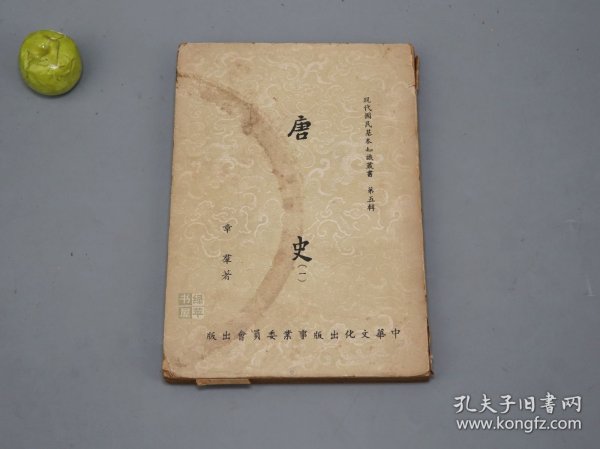 現代國民基本知識叢書 第五輯
唐 史(一)
章羣著
中華文化出版事業委員會出版
綠苹书屋
孔夫子旧書网
www.kongfz.com